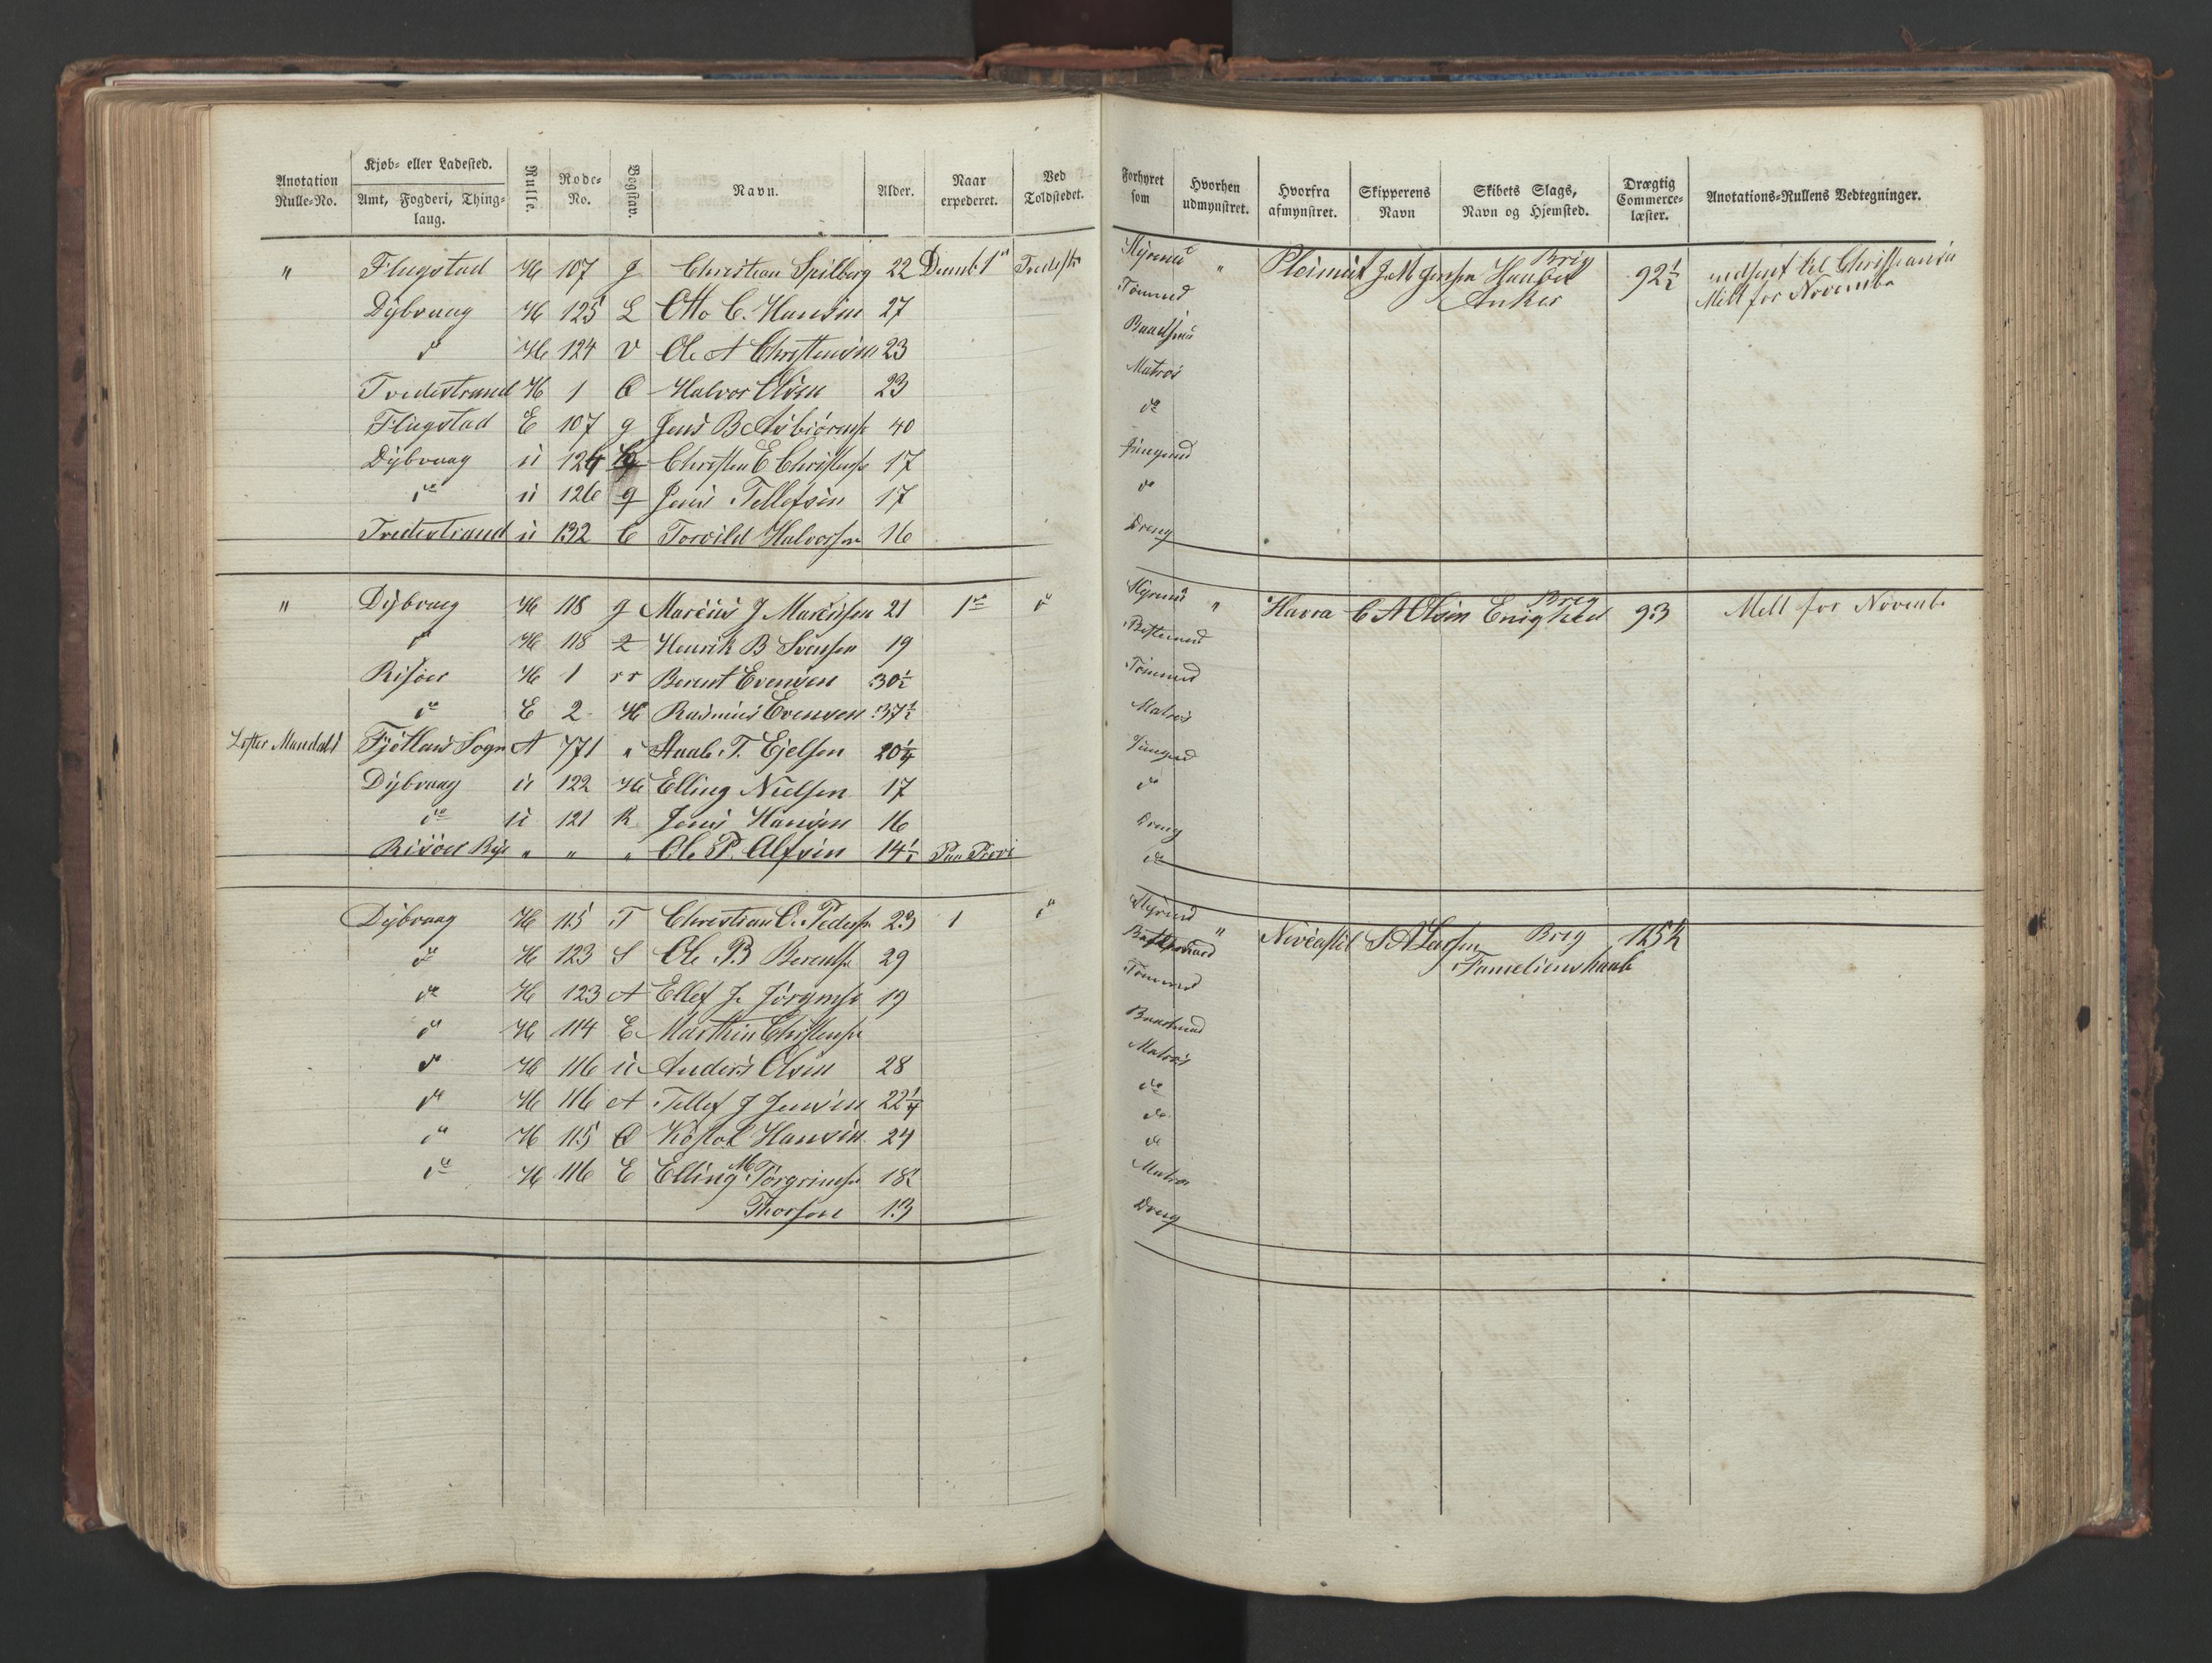 Anotation Rulle-No. | Kjøb- eller Ladested. Amt, Fogderi, Thinglaug. | Rulle. | Rode-No. | Bogstav. | Navn. | Alder. | Naar expederet. | Ved Toldstedet. | Forhyret som | Hvorhen udmynstret. | Hvorfra afmynstret. | Skipperens Navn | Skibets Slags, Navn og Hjemsted. | Drægtig Commerce-læster. | Anotations-Rullens Vedtegninger.
" Flugstad H 107 J Christian Spilberg 22 Decemb. 1 Tvedestr Styrmd " Pleimut J M Jensen Brig Haabet Anker 92½ indsent til Christiania Meldt for Novemb
Dybvaag H 125 L Otto C. Hansen 27 Tømmd
do H 124 V Ole A Christensen 23 Baadsmd
Tvedestrand H 1 O Halvor Olsen 23 Matros
Flugstad E 107 g Jens B Asbiørnsen 40 do
Dybvaag U 124 Christen E Christensen 17 Jungmd
do U 126 g Jens Tellefsen 17 do
Tvedestrand U 132 C Torvild Halvorsen 16 Dreng
" Dybvaag H 118 g Marcus J Marcussen 21 1 do Styrmd " Havra C A Olsen Brig Enighed 93 Meldt for Novemb.
do H 118 Z Henrik B Svensen 19 Bestemd
Risøer H 1 rr Berent Evensen 30½ Tømmd
do E 2 H Rasmus Evensen 37½ Matros
Lister Mandahl Fjøtland Sogn A 771 " Staale T. Ejelsen 20¼ Jungmd
Dybvaag U 122 H Elling Nielsen 17 do
do U 121 R Jens Hansen 16 Dreng
Risøer " " " Ole P. Alfsen 14½ Paa Prøve do
Dybvaag H 115 T Christian O. Pedersen 23 1 do Styrmd " Neucastel S A Larsen Brig Familienshaab 125½
do H 123 S Ole B Berentsen 29
do H 123 A Ellef J. Jørgensen 19 Tømmd
do H 114 E Marthin Christensen Baadsmd
do H 116 U Anders Olsen 28 Matros
do H 116 A Tellef J Jensen 22¼ do
do H 115 O Kistol Hansen 24 do
do
do H 116 E Elling M Torgrimsen 18½ Matros
Thorsen 13 Dreng